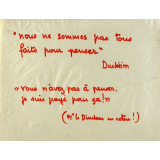 "nous ne sommes pas tous
faits pour penser"
Durkheim
"vous n'avez pas à penser,
je suis payé pour ça!"
(Mr le Directeur en cotes!)